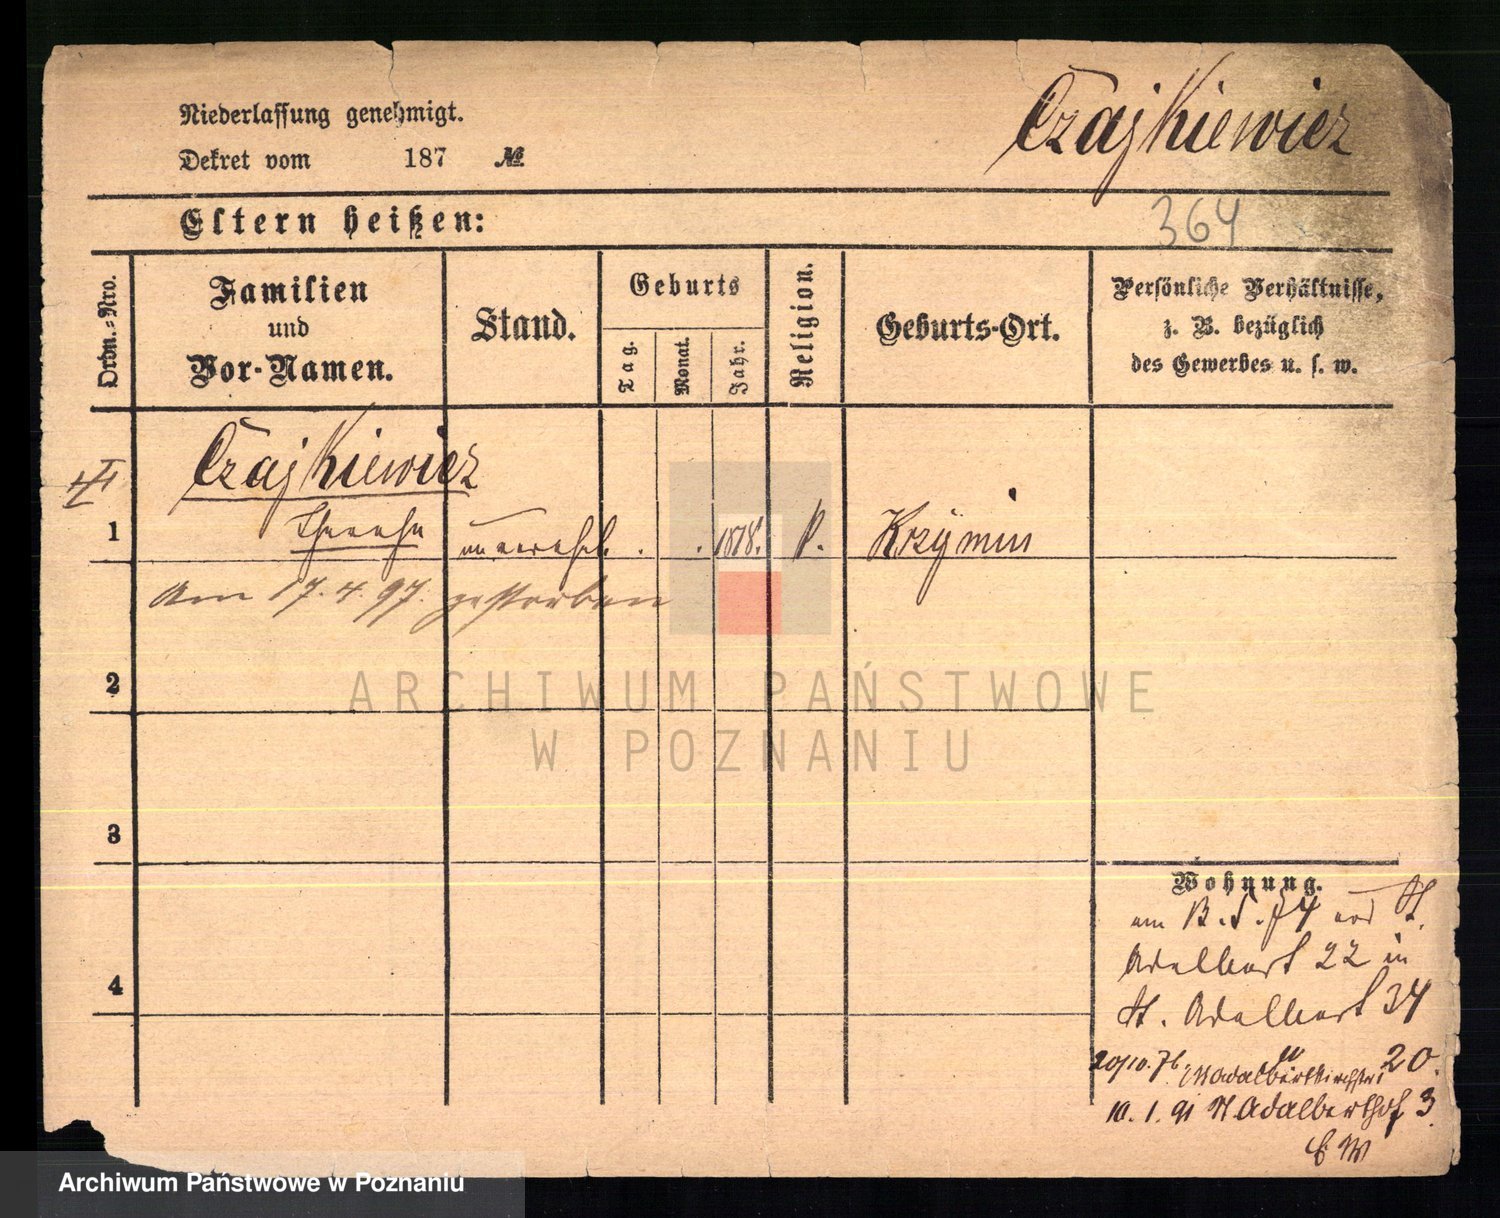 Niederlassung genehmigt.
Dekret vom 187 №
Czajkiewicz
364
Eltern heißen:
Ordn.=Nro.
Familien
und
Vor-Namen.
Stand.
Geburts
Tag.
Monat.
Jahr.
Religion.
Geburts-Ort.
Persönliche Verhältnisse,
z. B. bezüglich
des Gewerbes u. s. w.
Czajkiewicz
1 unverehel. . . Krzymin
Am 17.4.97. gestorben
2
3
4
Wohnung.
am 74 St.
Adalbert 22 in
St. Adalbert 34
20/10.76. 20.
10.1.91 St Adalberthof 3
ARCHIWUM PAŃSTWOWE
W POZNANIU
Archiwum Państwowe w Poznaniu